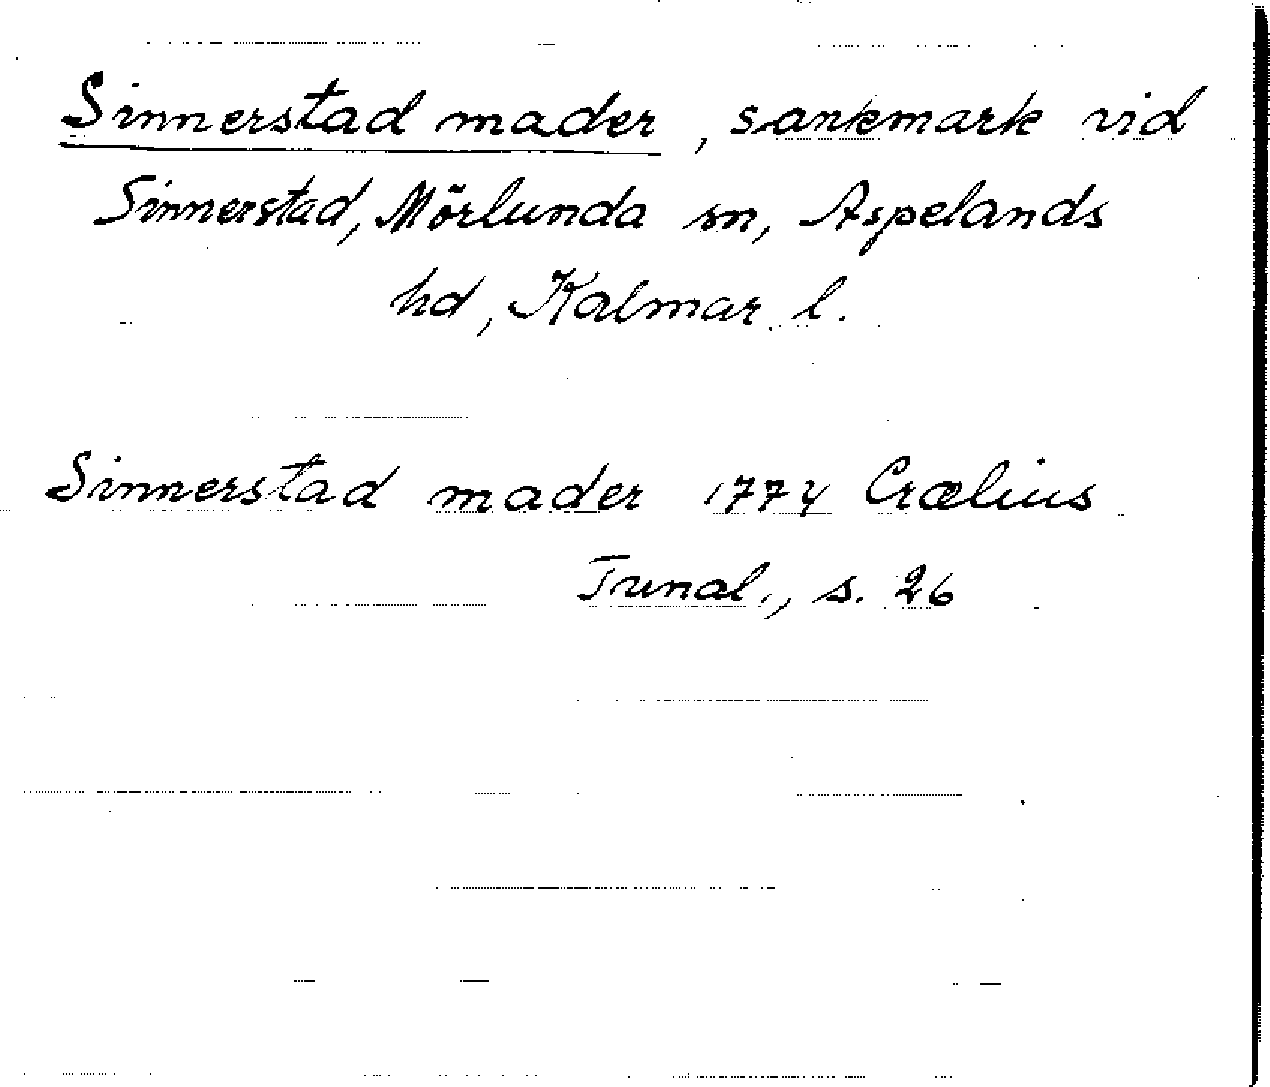 Sinnerstad mader, sankmark vid
Sinnerstad, Mörlunda sn, Aspelands
hd, Kalmar l.
Sinnerstad mader 1774 Crælius
Tunal., s. 26